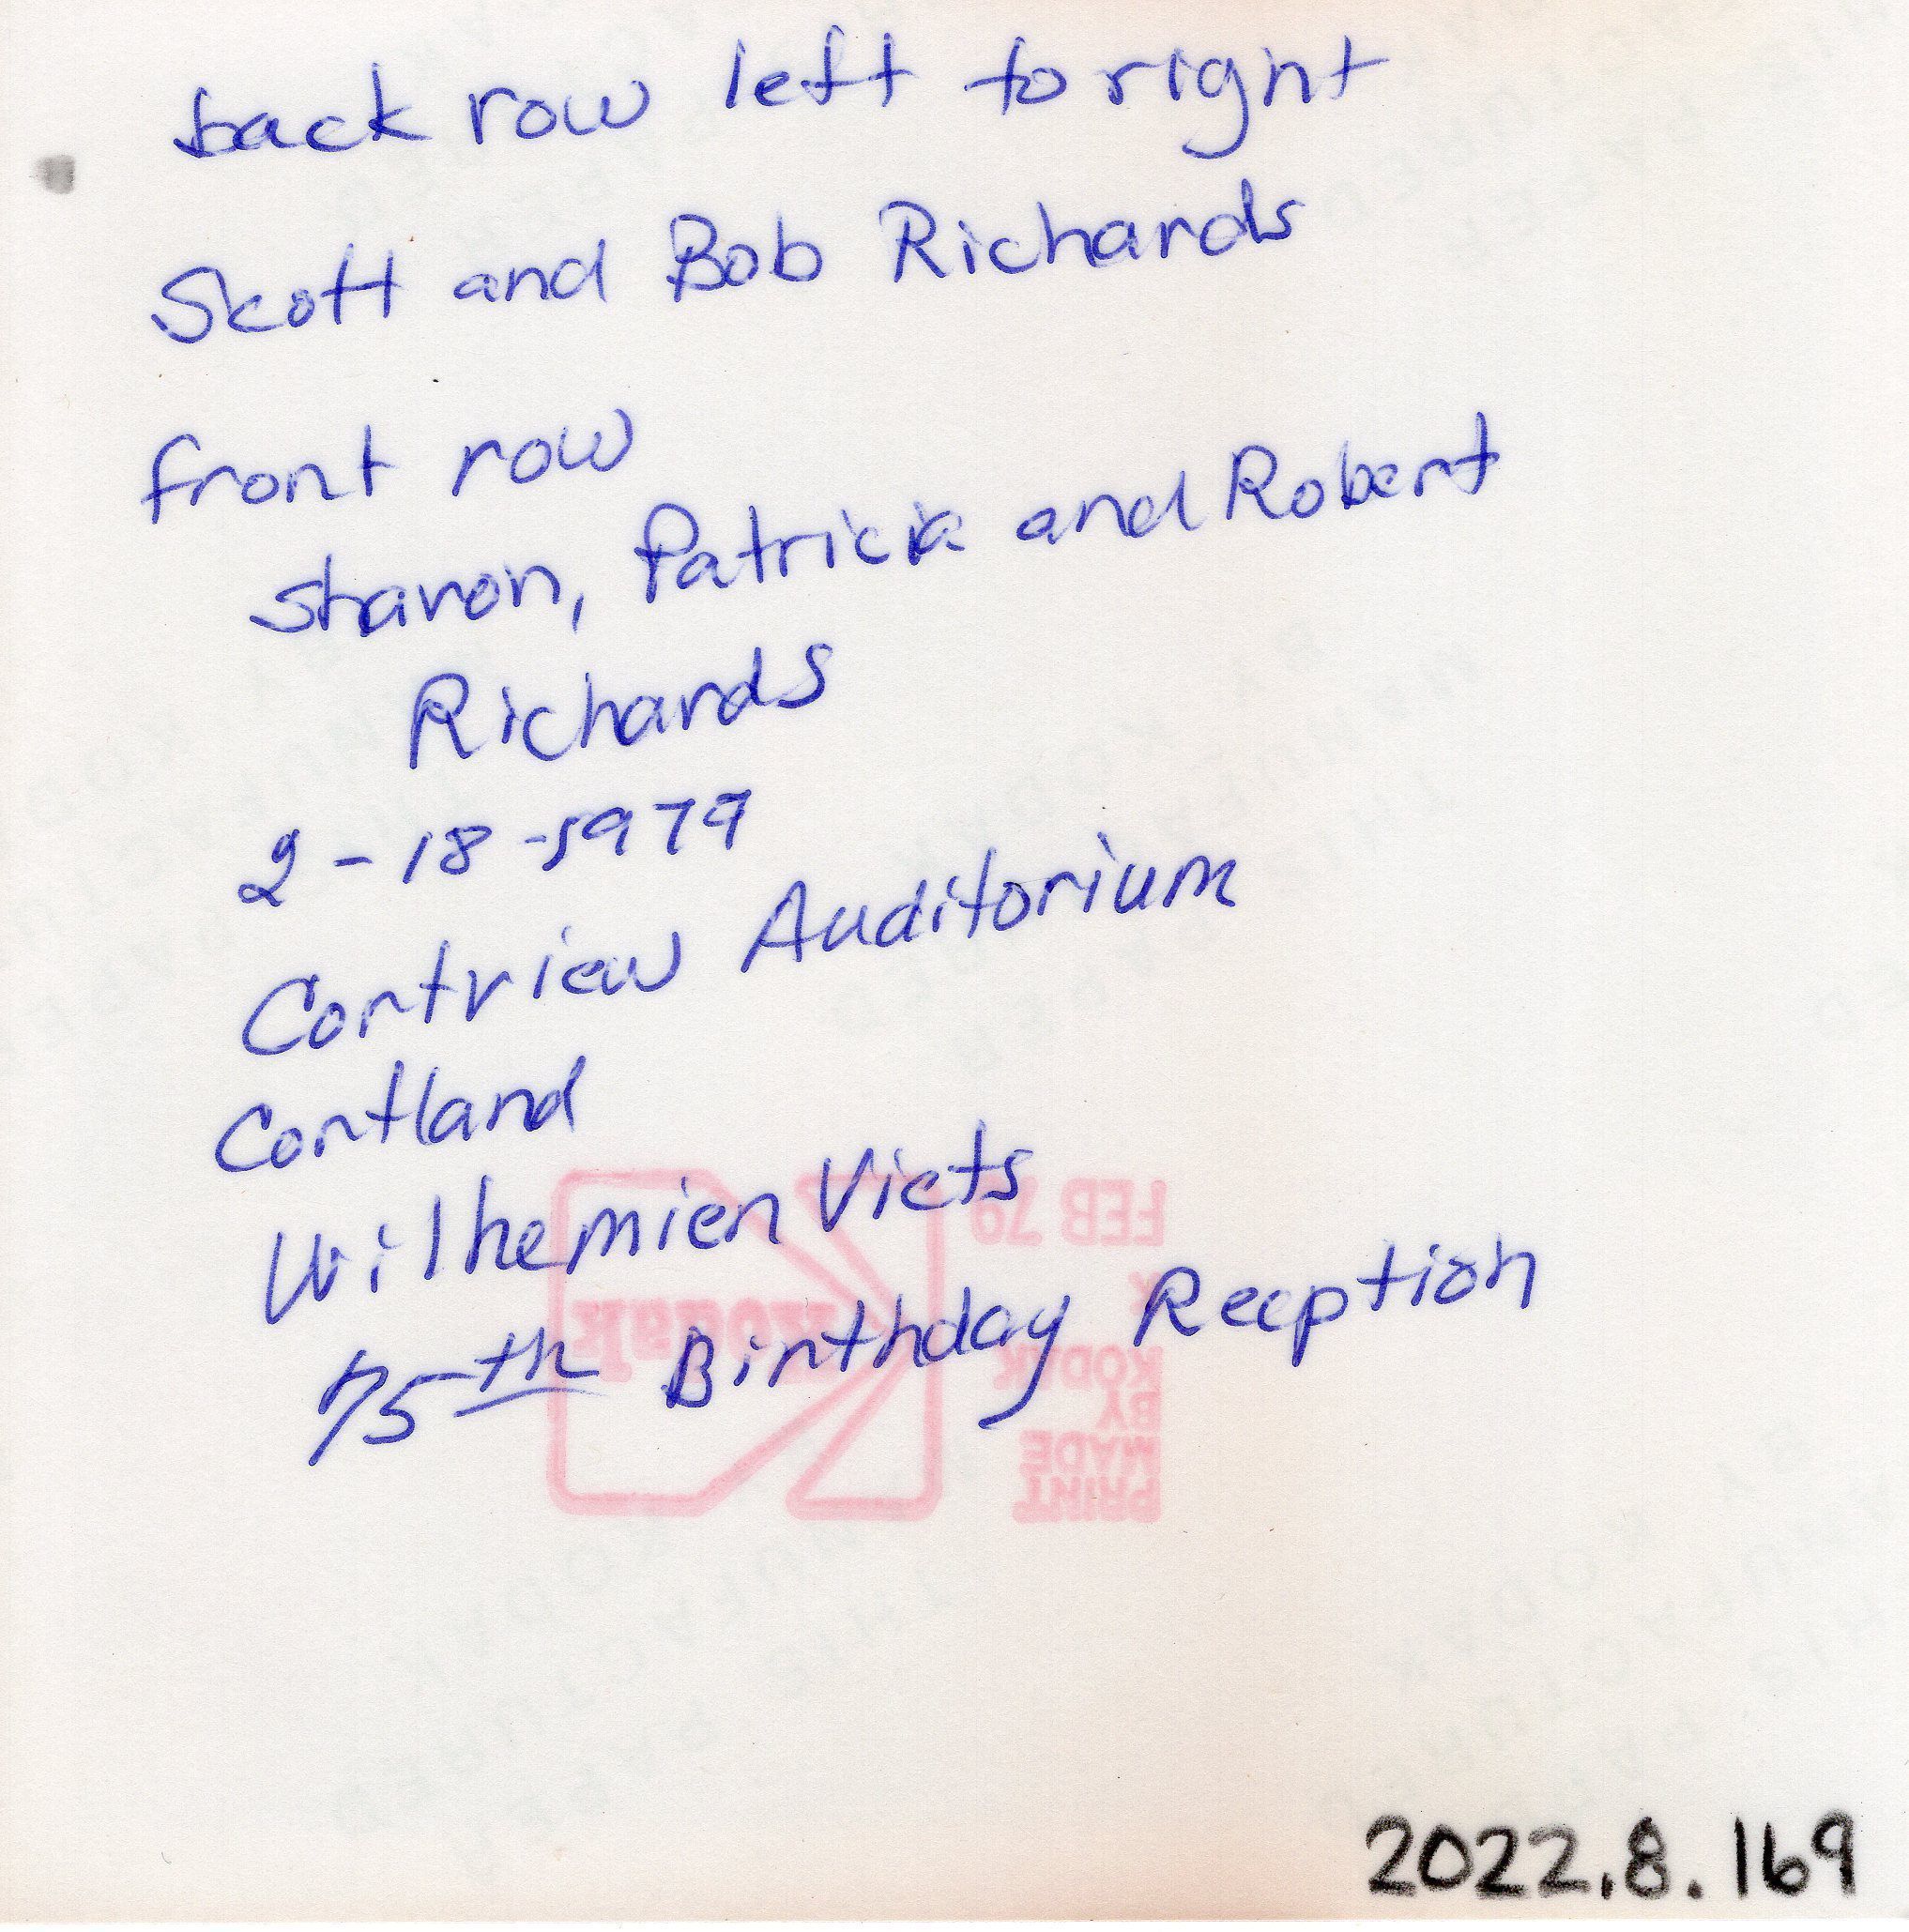 back row left to right
Scott and Bob Richards
front row
Sharon, Patricia and Robert
Richards
2-18-1979
Cortview Auditorium
Cortland
Wilhemien Viets
75th Birthday Reception
FEB 79
K
Kodak
KODAK
BY
MADE
PRINT
2022.8.169